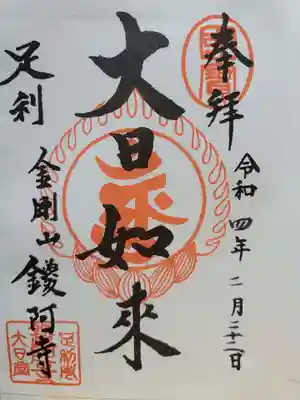 奉拝
令和四年二月二十二日
大日如來
足利
金剛山鑁阿寺